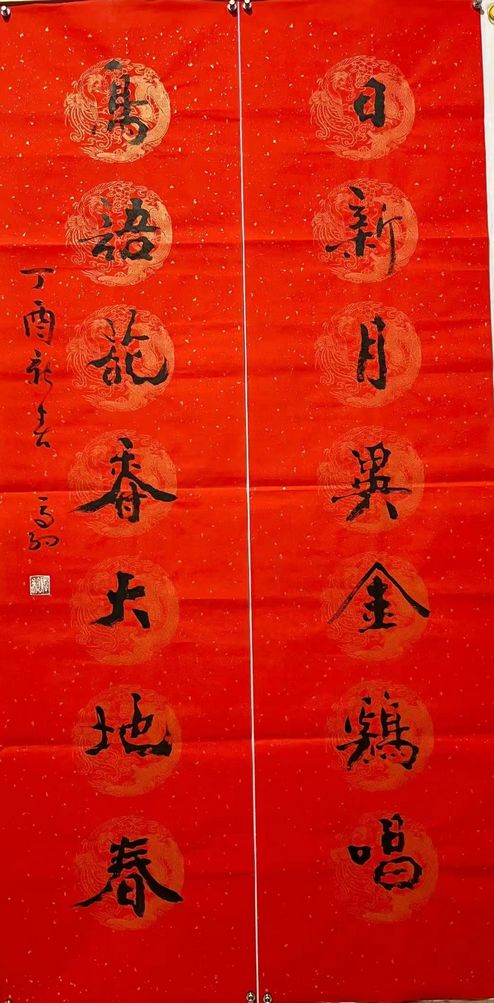 日新月異金鷄唱
鳥語花香大地春
丁酉新春